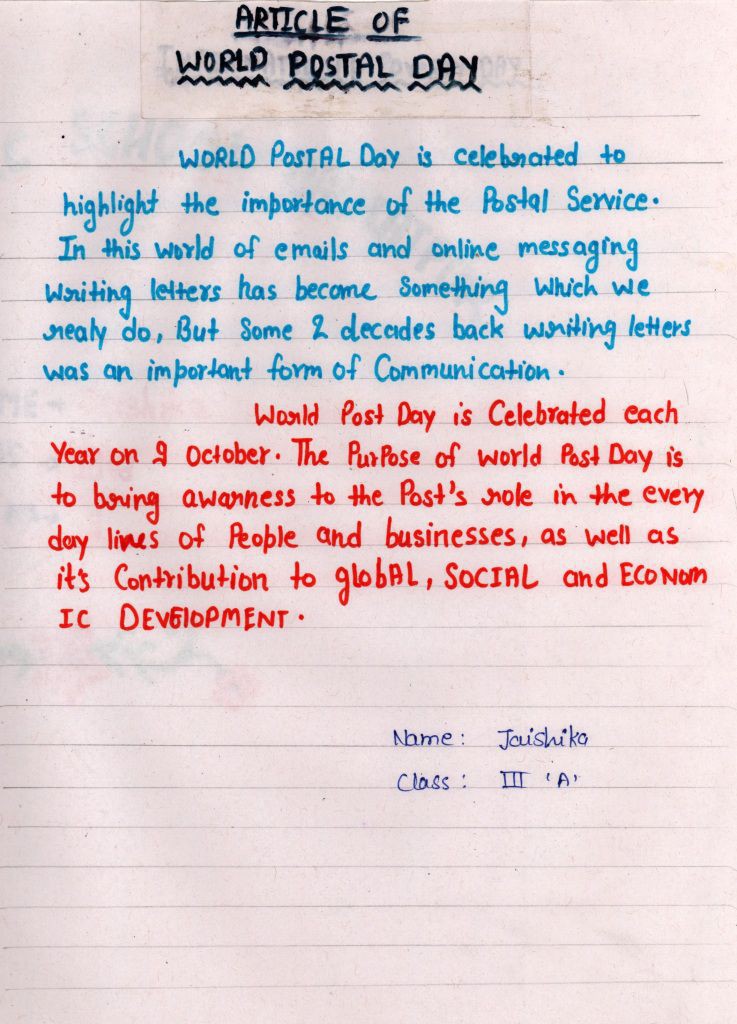 ARTICLE OF
WORLD POSTAL DAY
WORLD POSTAL Day is celebrated to
highlight the importance of the Postal Service.
In this world of emails and online messaging
writing letters has become something which we
realy do, But some 2 decades back writing letters
was an important form of Communication.
World Post Day is Celebrated each
Year on 9 October. The PurPose of world Post Day is
to bring awarness to the Post's role in the every
day lines of People and businesses, as well as
it's Contribution to globAL, SOCIAL and ECONOM
IC DEVElOPMENT.
Name: Jaishika
Class: III 'A'